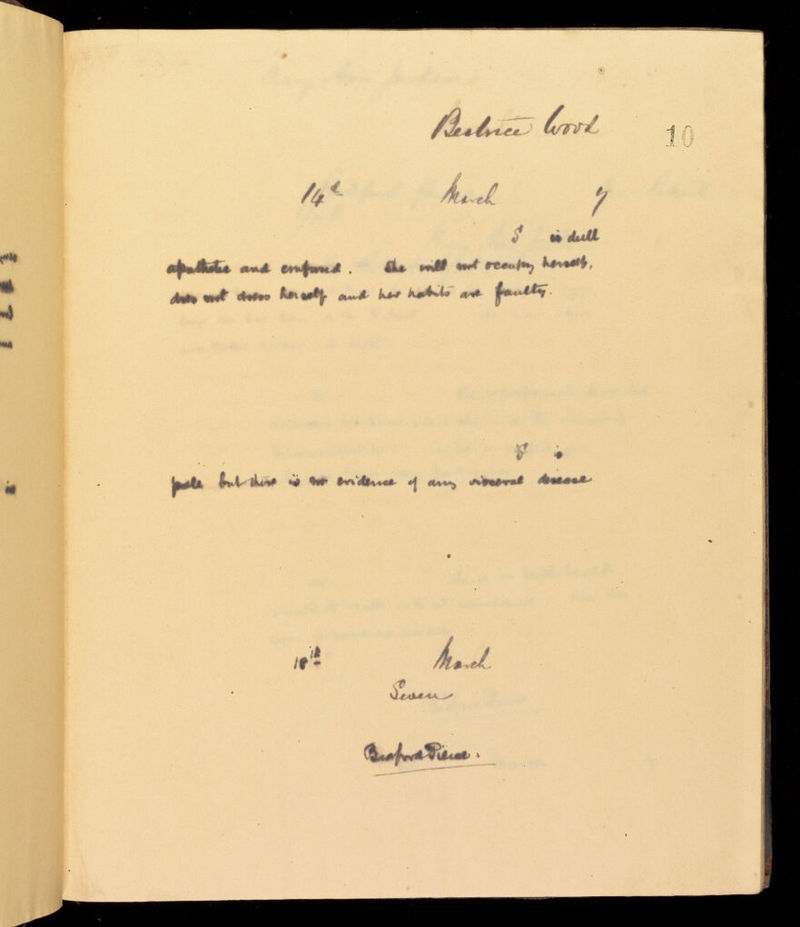 Beatrice Wood 10
14th March 7
S is dull
apathetic and confused. She will not occupy herself,
does not dress herself and her habits are faulty.
S is
pale but there is no evidence of any visceral disease
18th March
Seven
Bedford Pierce.